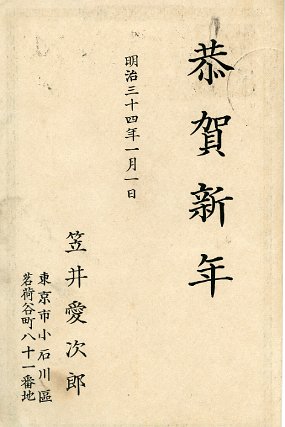 恭賀新年
明治三十四年一月一日
笠井愛次郎
東京市小石川區
茗荷谷町八十一番地